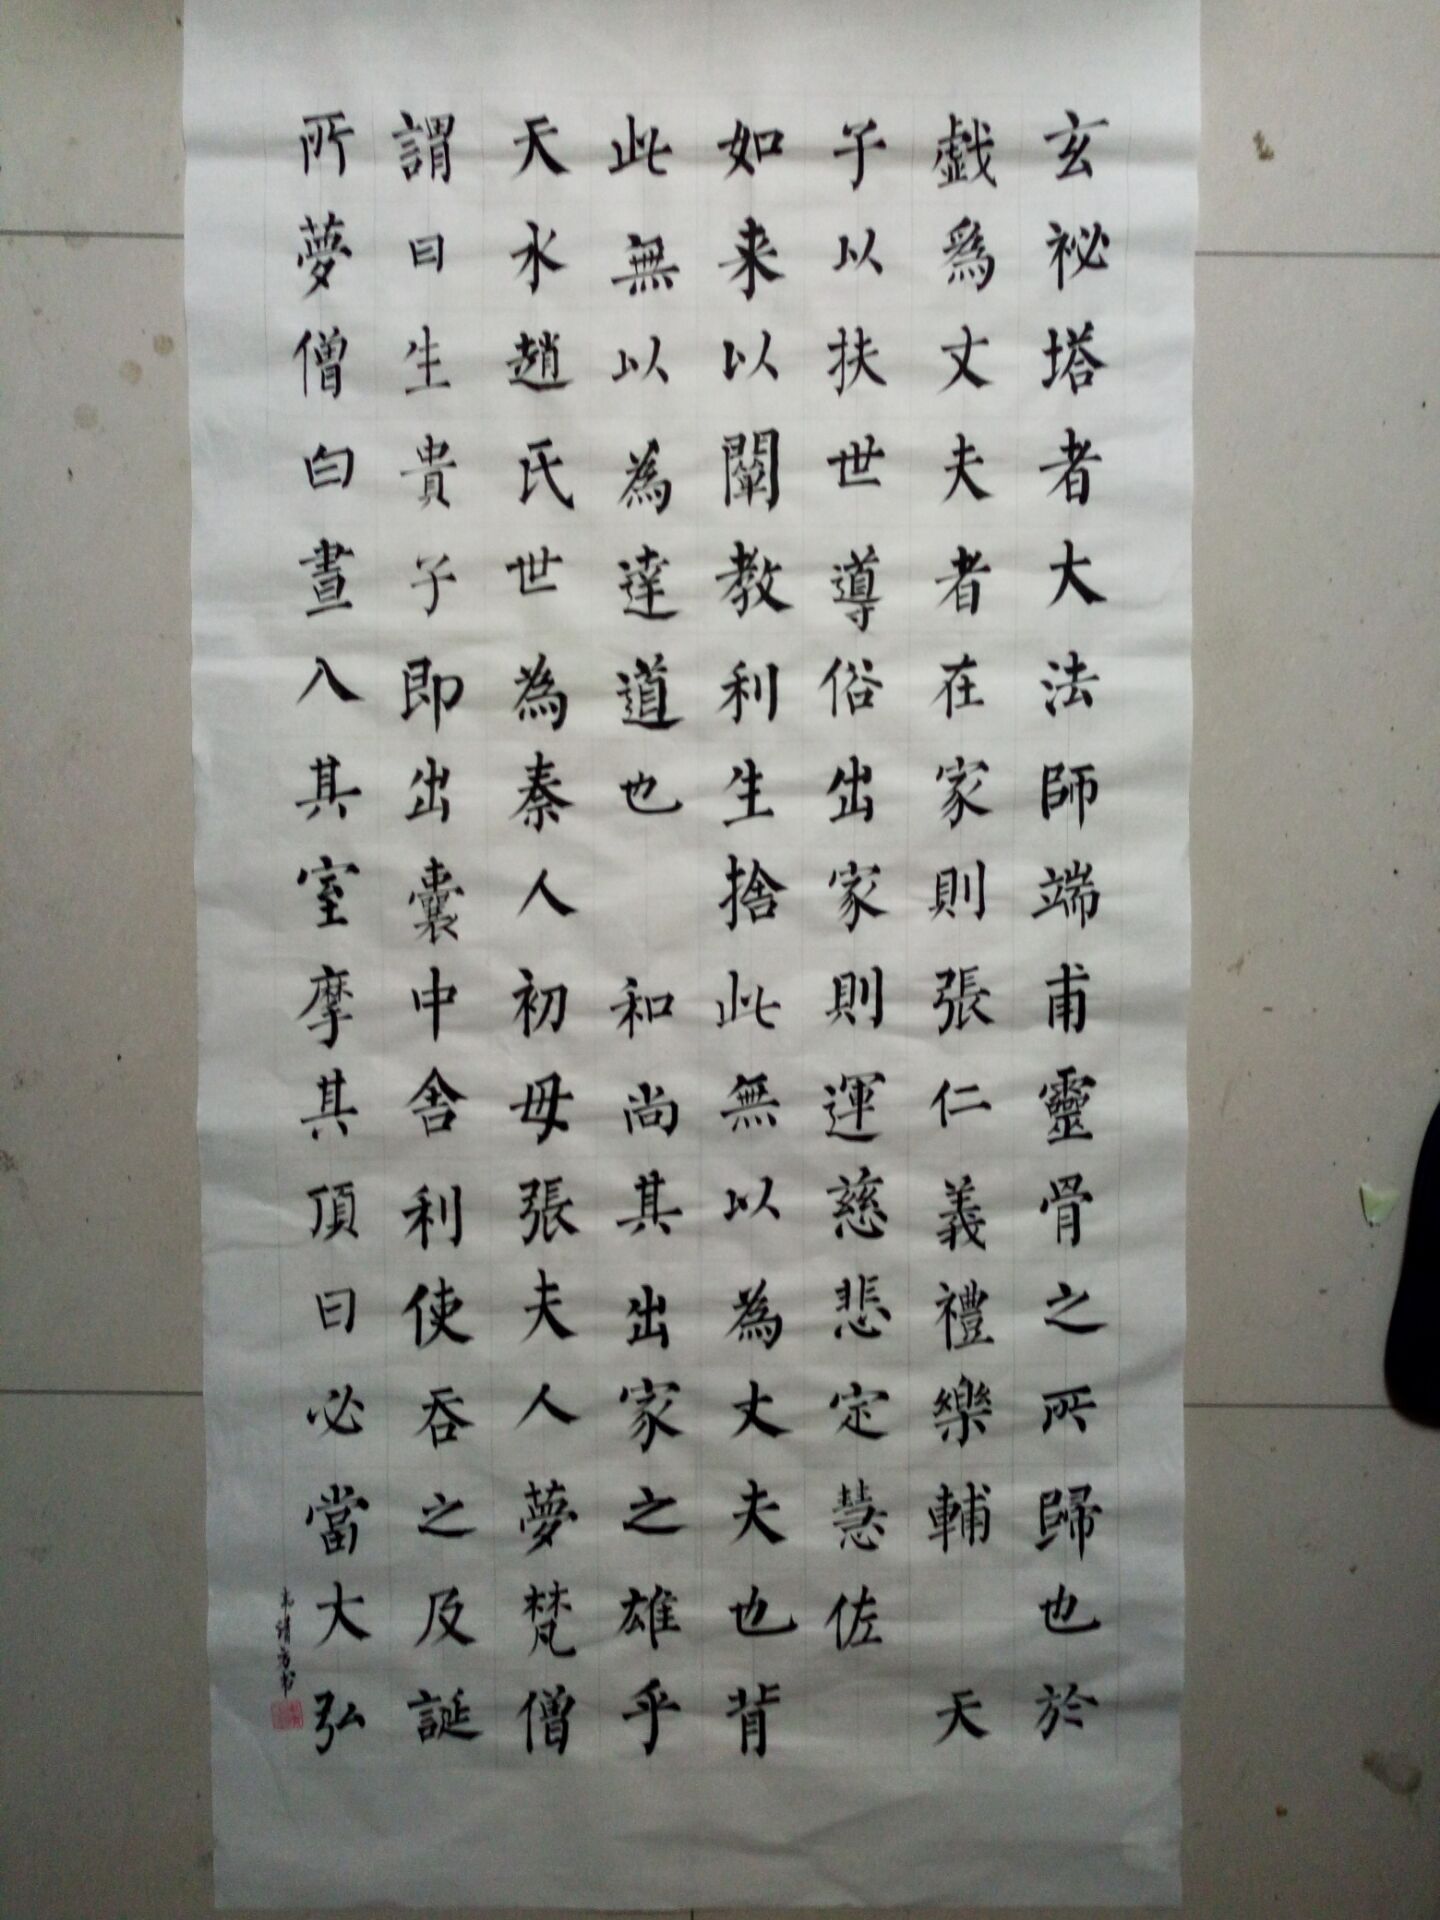 玄祕塔者大法師端甫靈骨之所歸也於
戲爲丈夫者在家則張仁義禮樂輔天
子以扶世導俗出家則運慈悲定慧佐
如来以闡教利生捨此無以為丈夫也背
此無以為達道也和尚其出家之雄乎
天水趙氏世為秦人初母張夫人夢梵僧
謂曰生貴子即出囊中舍利使吞之及誕
所夢僧白晝入其室摩其頂曰必當大弘